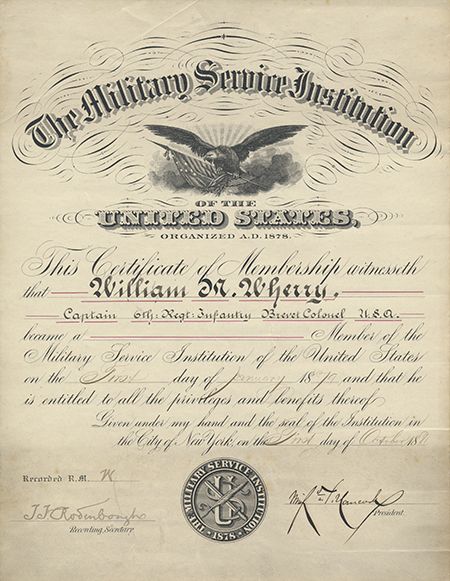 The Military Service Institution
OF THE
UNITED STATES,
ORGANIZED A.D. 1878.
This Certificate of Membership witnesseth
that William M. Wherry.
Captain 6th: Regt: Infantry Brevet Colonel U.S.A.
became a Member of the
Military Service Institution of the United States
on the First day of January 1879 and that he
is entitled to all the privileges and benefits thereof
Given under my hand and the seal of the Institution in
the City of New York, on the First day of October 18
Recorded R.M.
THE MILITARY SERVICE INSTITUTION
· 1878 ·
Winf. S. Hancock
President.
T. F. Rodenbough
Recording Secretary.